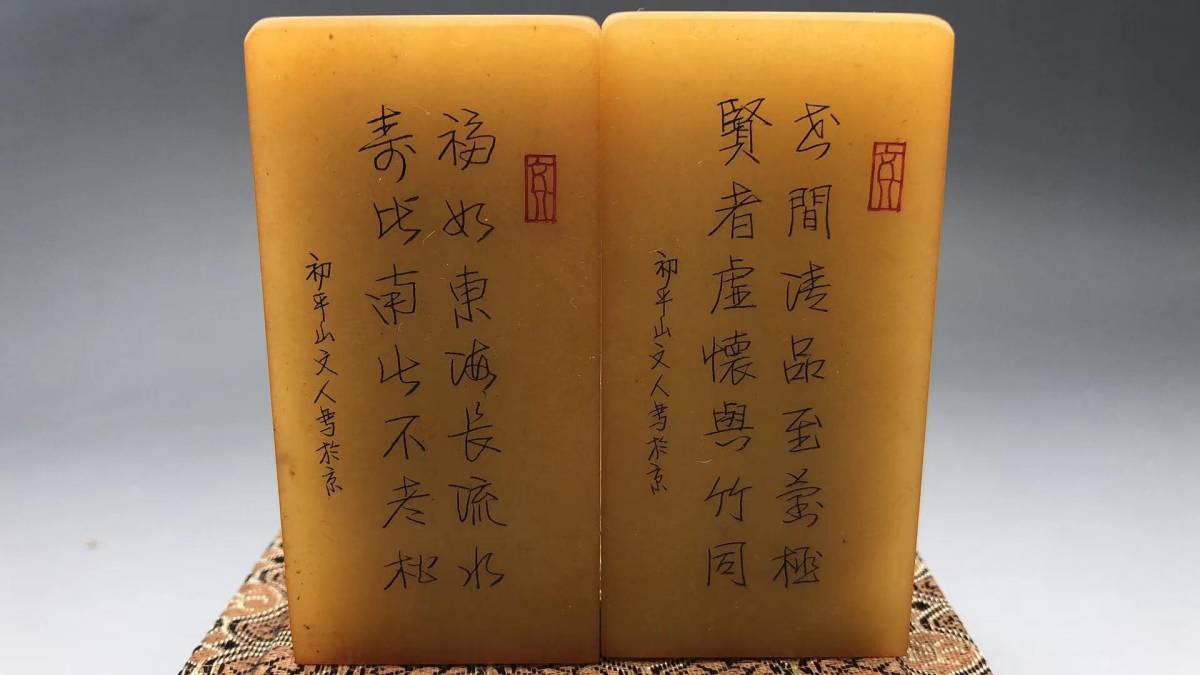 世間清品至蘭極
賢者虛懷與竹同
初平山文人書於京
福如東海長流水
寿比南山不老松
初平山文人書於京